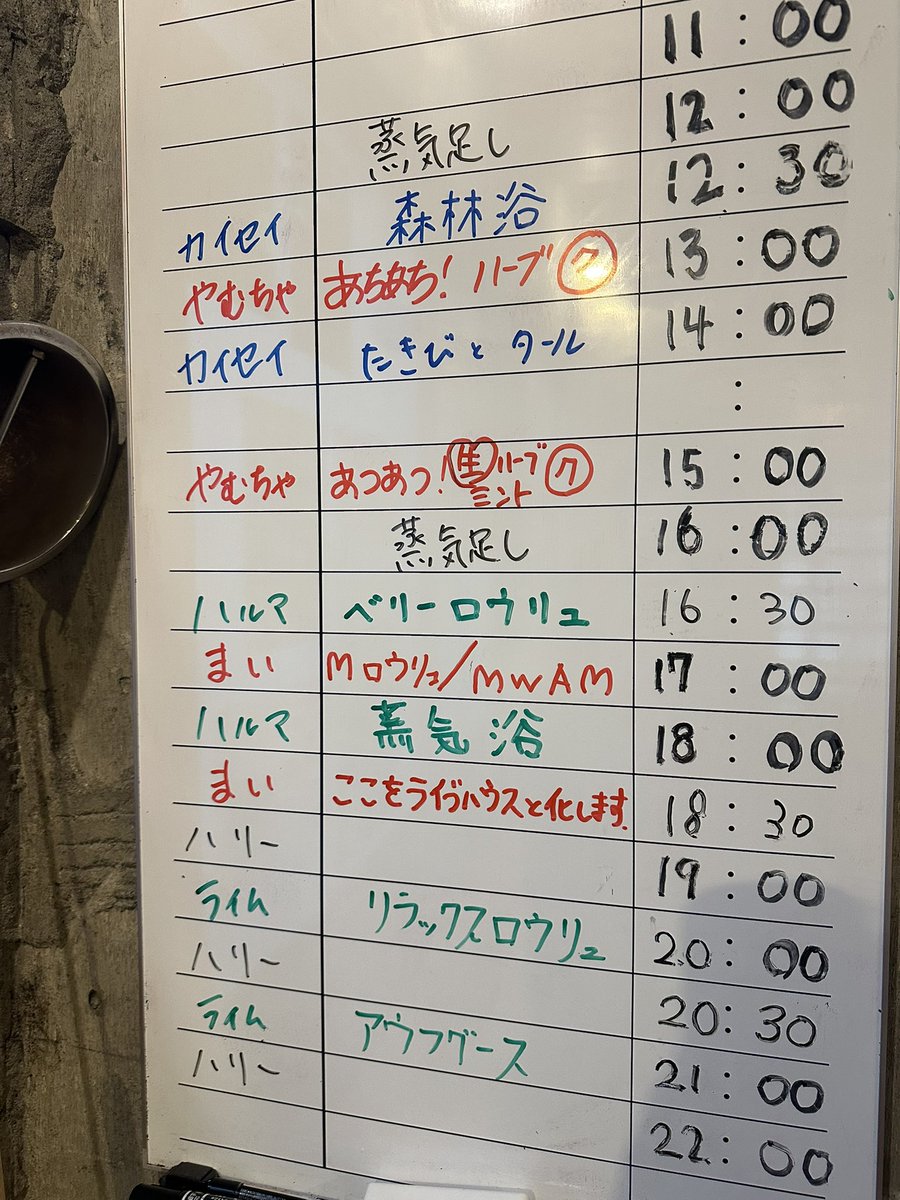 11:00
蒸気足し 12:00
カイセイ 森林浴 12:30
やむちゃ あちあち! ハーブ ク 13:00
カイセイ たきびと タール 14:00
:
やむちゃ あつあつ! ハーブ ミント ク 15:00
蒸気足し 16:00
ハルマ ベリーロウリュ 16:30
まい Mロウリュ/MWAM 17:00
ハルマ 蒸気浴 18:00
まい ここをライブハウスと化します. 18:30
ハリー 19:00
ライム リラックスロウリュ 20:00
ハリー 20:30
ライム アウフグース 21:00
ハリー 22:00